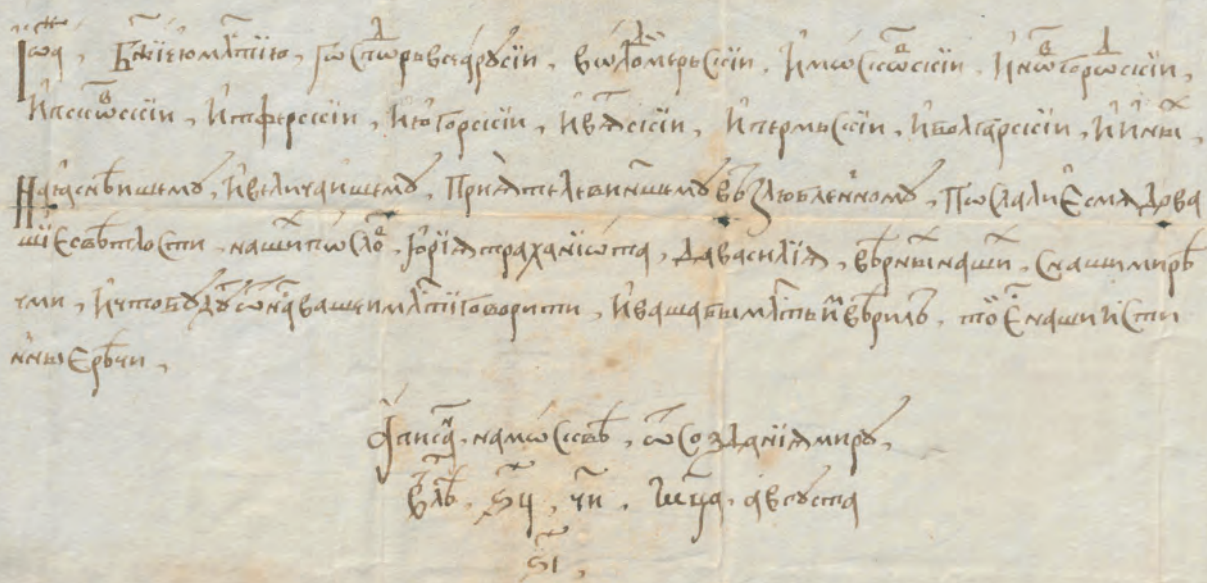 Іѡа҃нъ, Бж҃їею мл҃тїю, гѡспⷣрь всеа рꙋсїи, вѡлоⷣмерьскїи, и҆ мѡскѡⷡскїи, и҆ нѡⷡгорѡⷣскїи,
и҆ псков̾скїи, и҆ тферскїи, и҆ югорскїи, и҆ вѧтскїи, и҆ пермьскїи, и҆ болгарскїи, и҆ и҆ныⷯ,
наꙗснѣишемꙋ, и҆ величаишемꙋ, прїѧтелеви нш҃емꙋ въꙁлюбленномꙋ, пѡслали есмѧ до ва
шїе свѣтлости, нашиⷯ пѡслѡⷡ, юрїѧ траханїѡта, да василїѧ, вѣрныⷯ нашиⷯ, с нашими рѣ
чми, и҆ что бꙋдꙋтъ ѿ нас вашеи мл҃ти говорити, и҆ ваша бы мл҃ть и҆мъ вѣрилъ, то е҆ наши и҆сти
нные рѣчи,
а҆ писан, на мѡсквѣ, ѿ создaнїѧ мирꙋ,
в лѣⷮ, ѕ҃ц, ч҃и, мц҃а, авгꙋста
ѕ҃і,